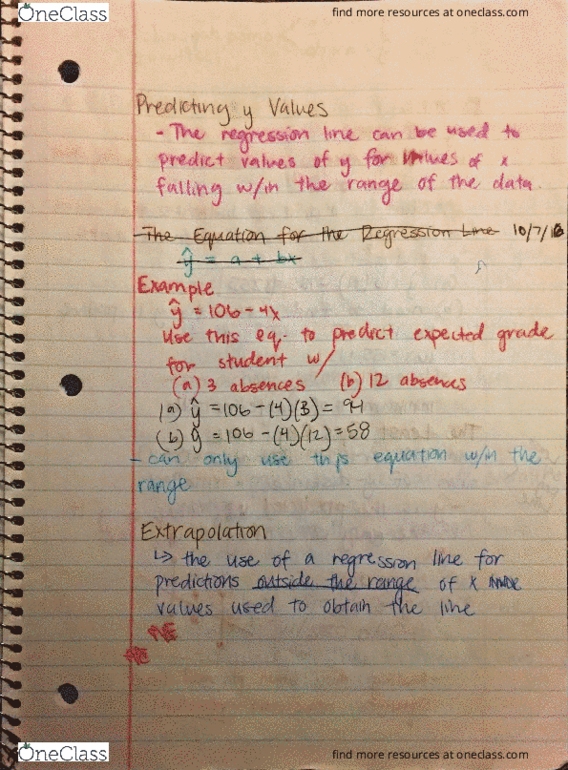 OneClass
find more resources at oneclass.com
Predicting y Values
- The regression line can be used to
predict values of y for values of x
falling w/in the range of the data.
The Equation for the Regression Line 10/7/16
ŷ = a + bx
Example
ŷ = 106 - 4x
Use this eq. to predict expected grade
for student w/
(a) 3 absences (b) 12 absences
(a) ŷ = 106 - (4)(3) = 94
(b) ŷ = 106 - (4)(12) = 58
- can only use this equation w/in the
range
Extrapolation
↳ the use of a regression line for
predictions outside the range of x
values used to obtain the line
NE
OneClass
find more resources at oneclass.com